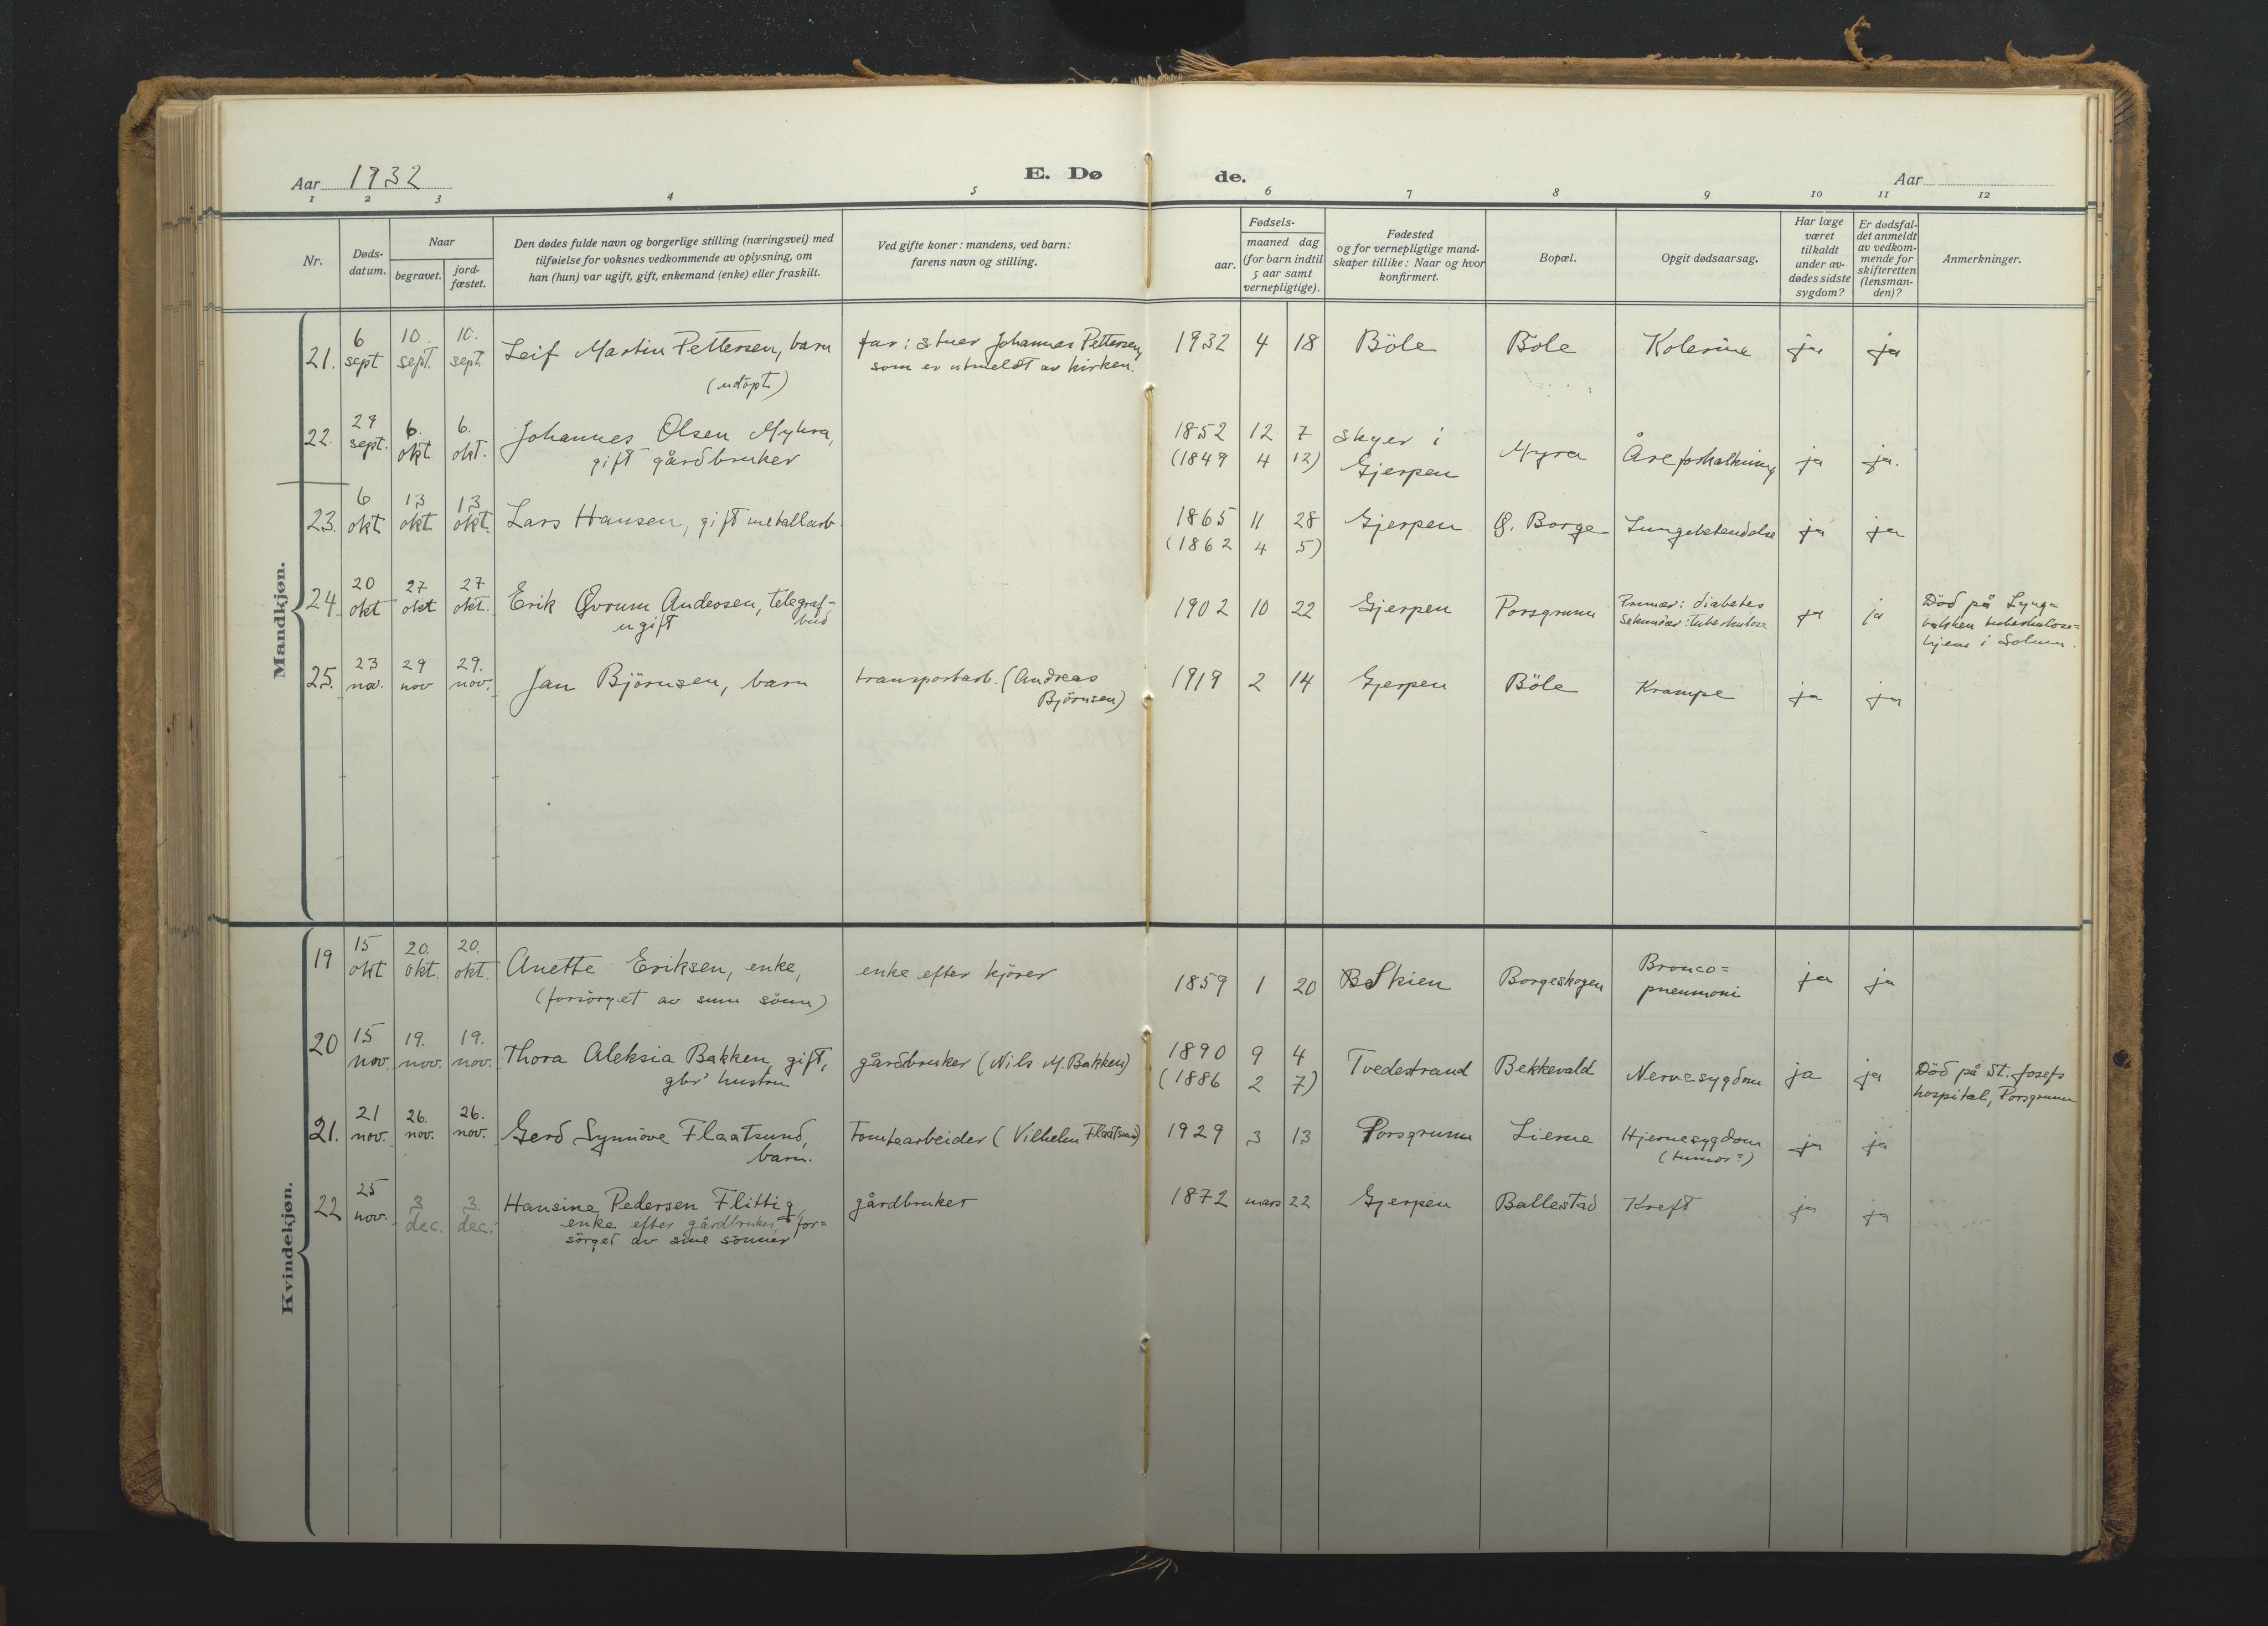 Aar 1932
E. Dø de.
Aar
1 2 3 4 5 6 7 8 9 10 11 12
Nr.
Døds-
datum.
Naar
begravet.
jord-
fæstet.
Den dødes fulde navn og borgerlige stilling (næringsvei) med
tilføielse for voksnes vedkommende av oplysning, om
han (hun) var ugift, gift, enkemand (enke) eller fraskilt.
Ved gifte koner: mandens, ved barn:
farens navn og stilling.
Fødsels-
aar.
maaned dag
(for barn indtil
5 aar samt
vernepligtige).
Fødested
og for vernepligtige mand-
skaper tillike: Naar og hvor
konfirmert.
Bopæl.
Opgit dødsaarsag.
Har læge
været
tilkaldt
under av-
dødes sidste
sygdom?
Er dødsfal-
det anmeldt
av vedkom-
mende for
skifteretten
(lensman-
den)?
Anmerkninger.
Mandkjøn.
21. 6 sept 10. sept. 10. sept. Leif Martin Pettersen, barn far: stuer Johannes Pettersen, 1932 4 18 Böle Böle Kolerine ja ja
(udöpt) som er utmeldt av kirken.
22. 29 sept. 6. okt 6. okt. Johannes Olsen Myhra, 1852 12 7 Skyer i Myra Åreforkalkning ja ja.
gift gårdbruker (1849 4 12) Gjerpen
23. 6 okt 13 okt 13 okt. Lars Hansen, gift metallarb. 1865 11 28 Gjerpen Ø. Borge Lungebetendelse ja ja
(1862 4 5)
24. 20 okt 27 okt 27 okt. Erik Øvrum Andersen, telegraf- 1902 10 22 Gjerpen Porsgrunn Primær: diabetes ja ja Död på Lyng=
ugift bud Sekundær: tuberkulose bakken tuberkulose=
hjem i Solum.
25. 23 nov. 29 nov 29. nov. Jan Björnsen, barn transportarb. (Andreas 1919 2 14 Gjerpen Böle Krampe ja ja
Björnsen)
Kvindekjøn.
19 15 okt 20. okt. 20. okt. Anette Eriksen, enke, enke efter kjörer 1859 1 20 Skien Borgeskogen Bronco= ja ja
(forsörget av sine sönn) pneumoni
20 15 nov. 19. nov. 19. nov. Thora Aleksia Bakken, gift, gårdbruker (Nils M. Bakken) 1890 9 4 Tvedestrand Bekkevald Nervesygdom ja ja Död på St. Josefs
gbr' hustru (1886 2 7) hospital, Porsgrunn
21. 21 nov. 26. nov. 26. nov. Gerd Synnöve Flaatsund, Tomtearbeider (Vilhelm Flaatsund) 1929 3 13 Porsgrunn Lierne Hjernesygdom ja ja
barn. (tumor?)
22 25 nov. 3 dec. 3. dec. Hansine Pedersen Flittig, gårdbruker 1872 mars 22 Gjerpen Ballestad Kreft ja ja
enke efter gårdbruker, for=
sörget av sine sönner